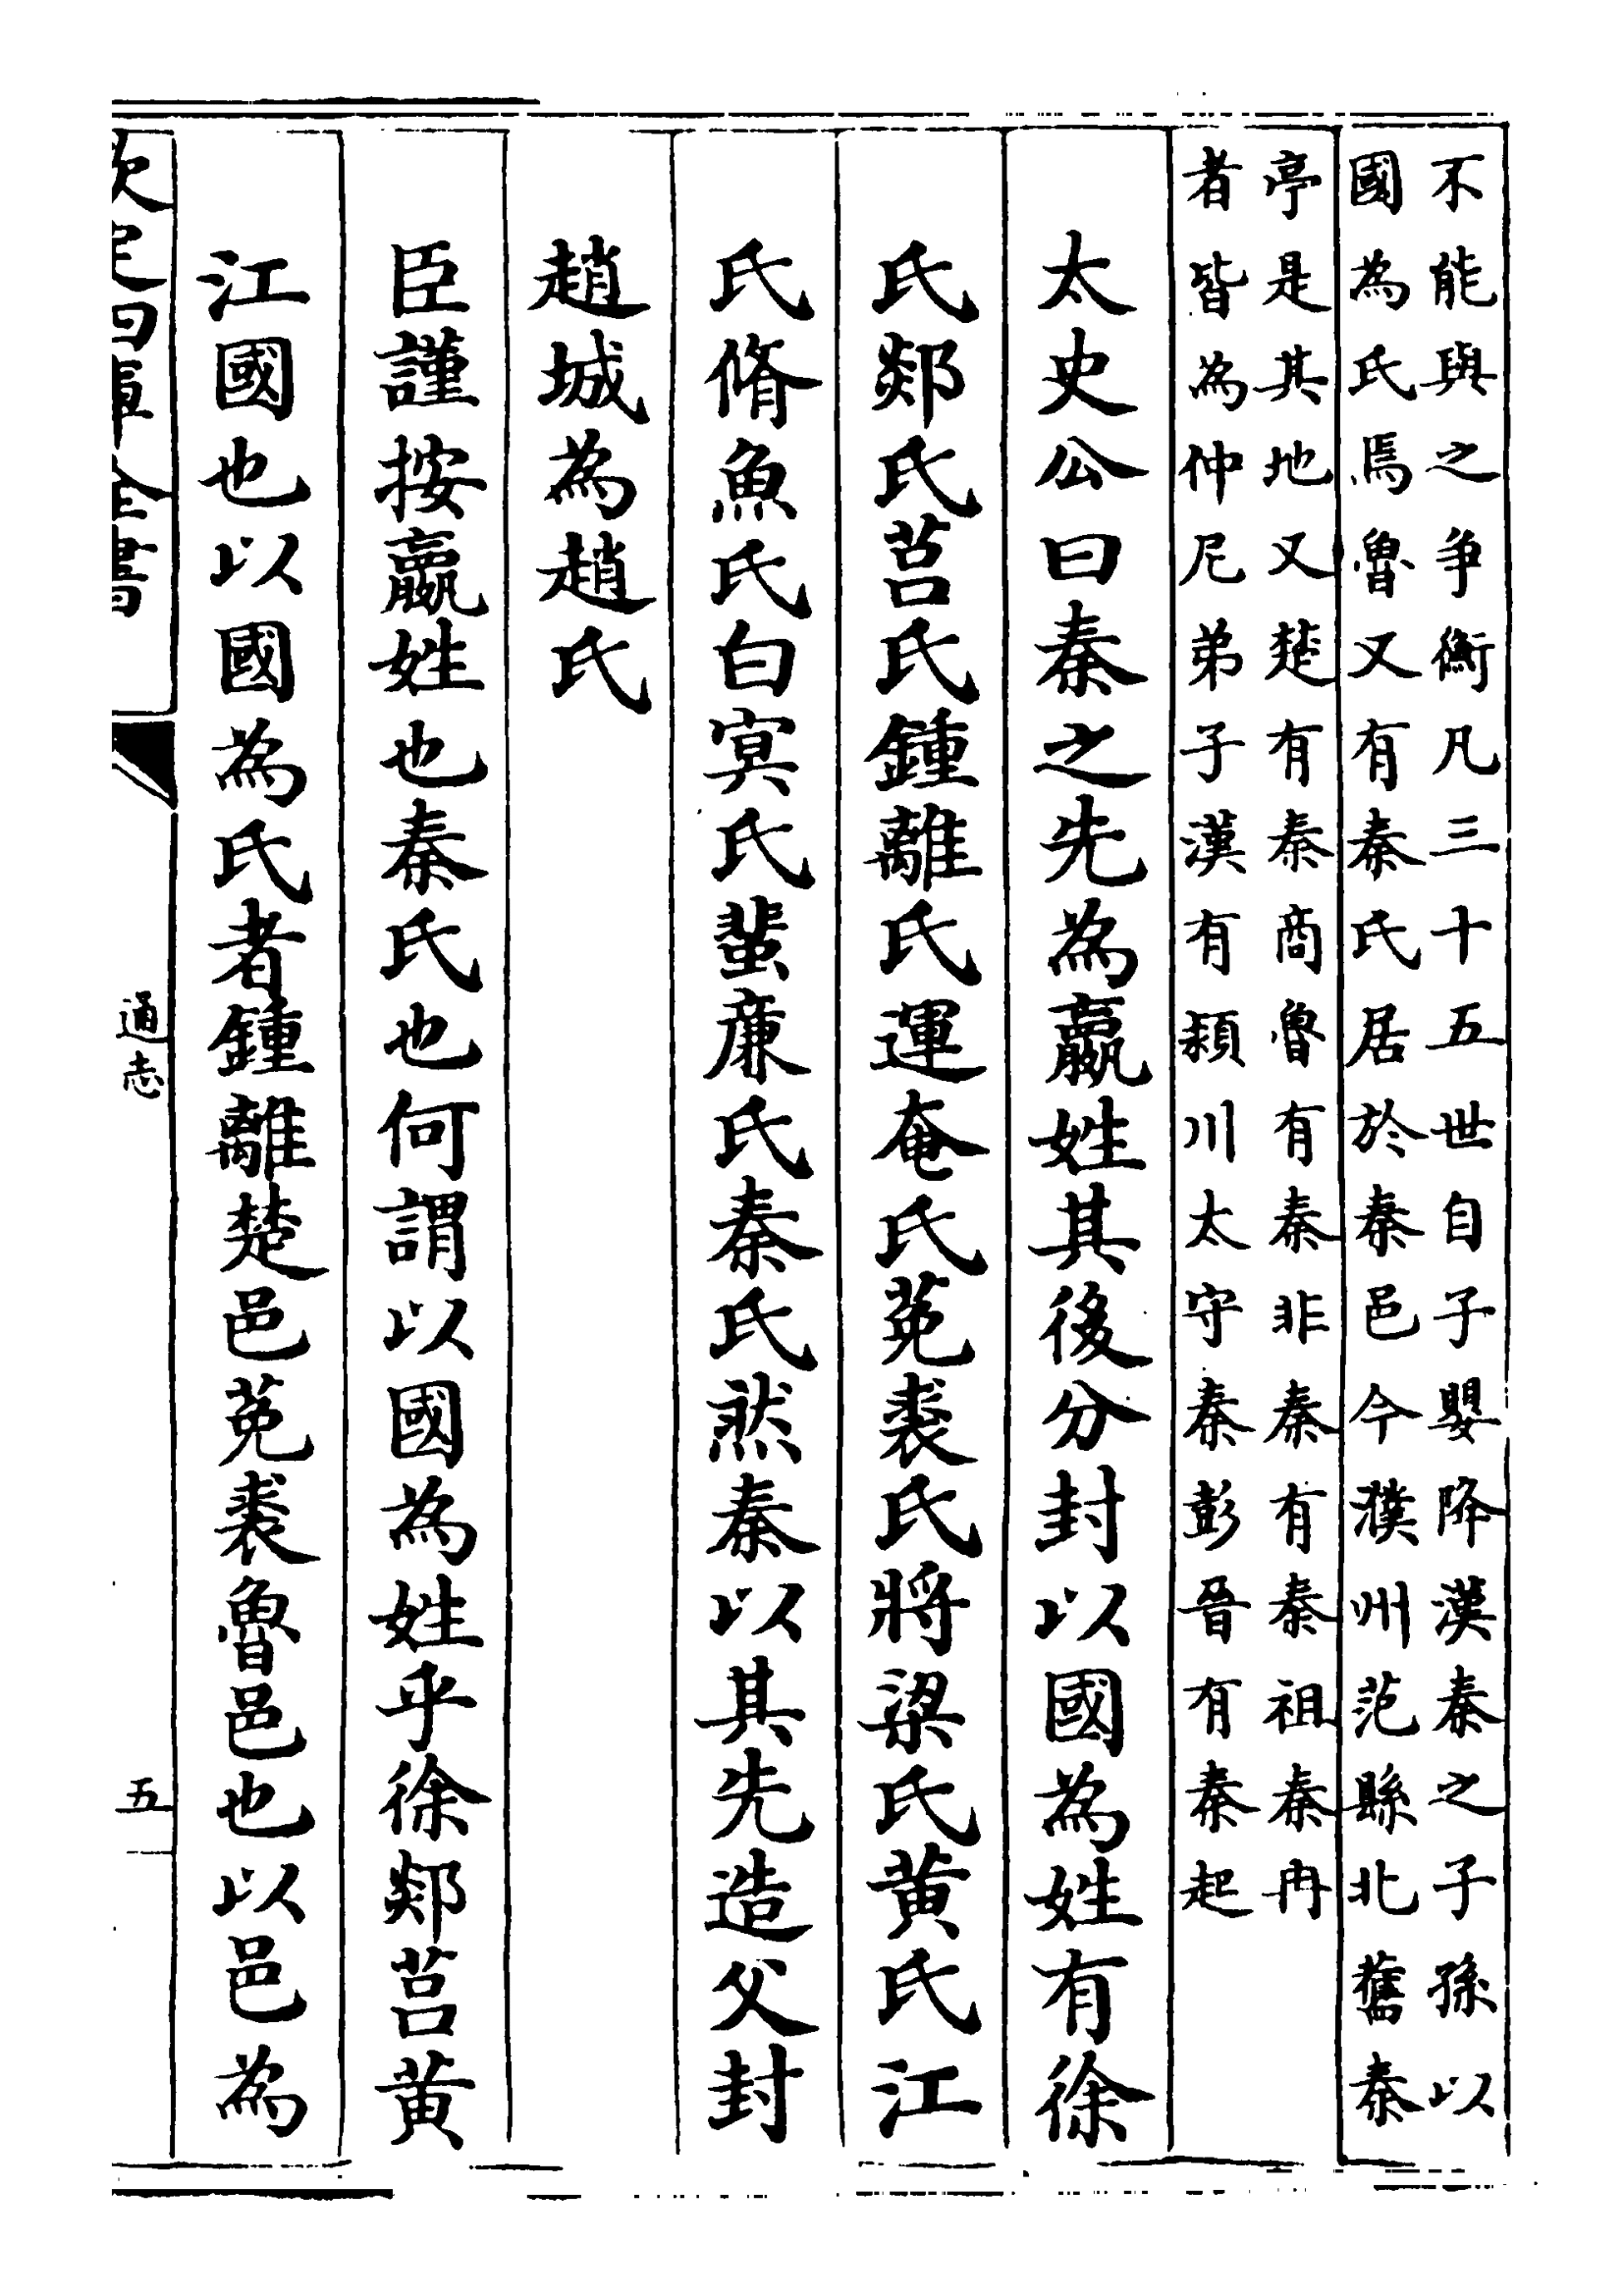 不能與之争衡凡三十五世自子嬰降漢秦之子孫以
國為氏焉魯又有秦氏居於秦邑今濮州范縣北舊秦
亭是其地又楚有秦商魯有秦非秦有秦祖秦冉
者皆為仲尼弟子漢有潁川太守秦彭晉有秦起
太史公曰秦之先為嬴姓其後分封以國為姓有徐
氏郯氏莒氏鍾離氏運奄氏菟裘氏將梁氏黄氏江
氏脩魚氏白寘氏蜚廉氏秦氏然秦以其先造父封
趙城為趙氏
臣謹按嬴姓也秦氏也何謂以國為姓乎徐郯莒黄
江國也以國為氏者鍾離楚邑菟裘魯邑也以邑為
欽定四庫全書
通志
五